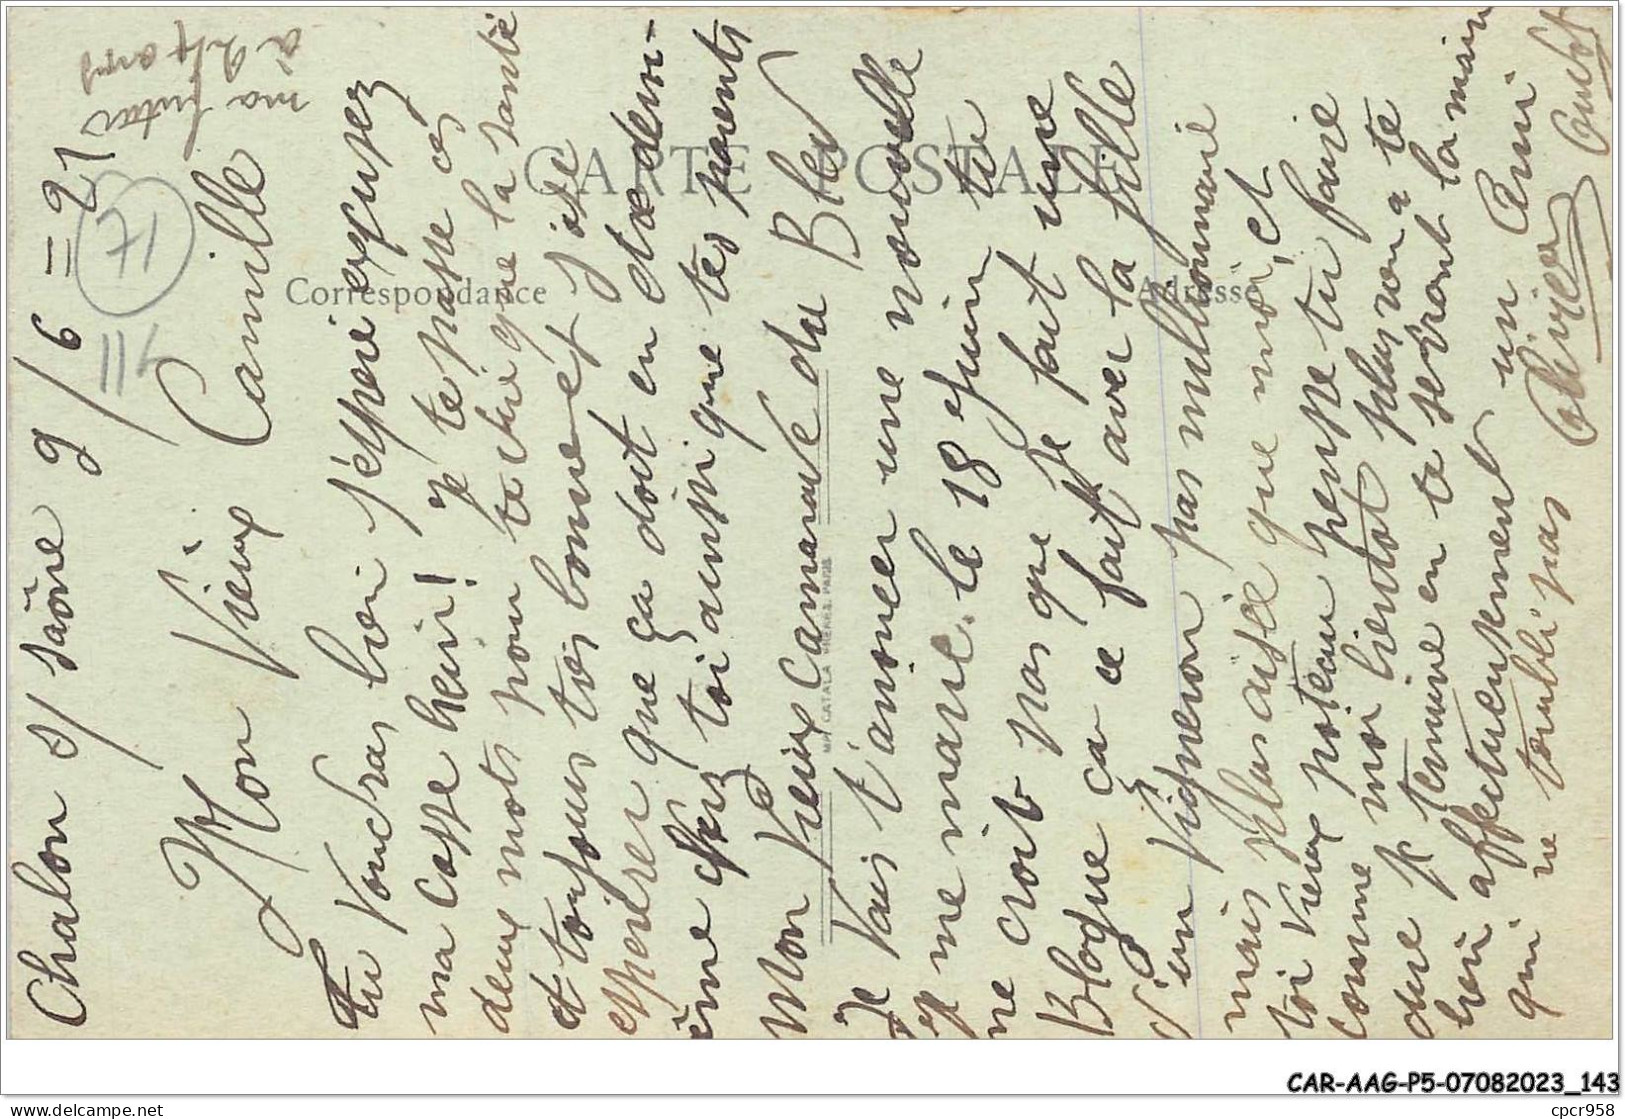 Chalon s/ Saône 9/6 = 21
Mon Vieux Camille
Tu Voudras bien j'éspère éxqusez
ma casse hein! Je te passe ces
deux mots pour te dire que la santé
et toujours très bonne et j'ose
esperer que ça doit en etre dem-
ême chez toi aussi que tes parents
Mon Vieux Camarade du Bled
Je Vais t'annoncer une nouvelle
je me marie le 18 juin tu
ne crois pas que je fait une
Blague ça ce fait avec la fille
d'un Vigneron pas millionnaire
mais plus aisée que moi, et
toi Vieux poteau pense tu faire
comme moi bientot plus rien a te
dire je termine en te serrant la main
bien affectueusement un Ami
qui ne t'oubli pas
ma futur
a 24 ans
17
CARTE POSTALE
Correspondance
Adresse
CATALA FRERES, PARIS
CAR-AAG-P5-07082023_143
cpcr958